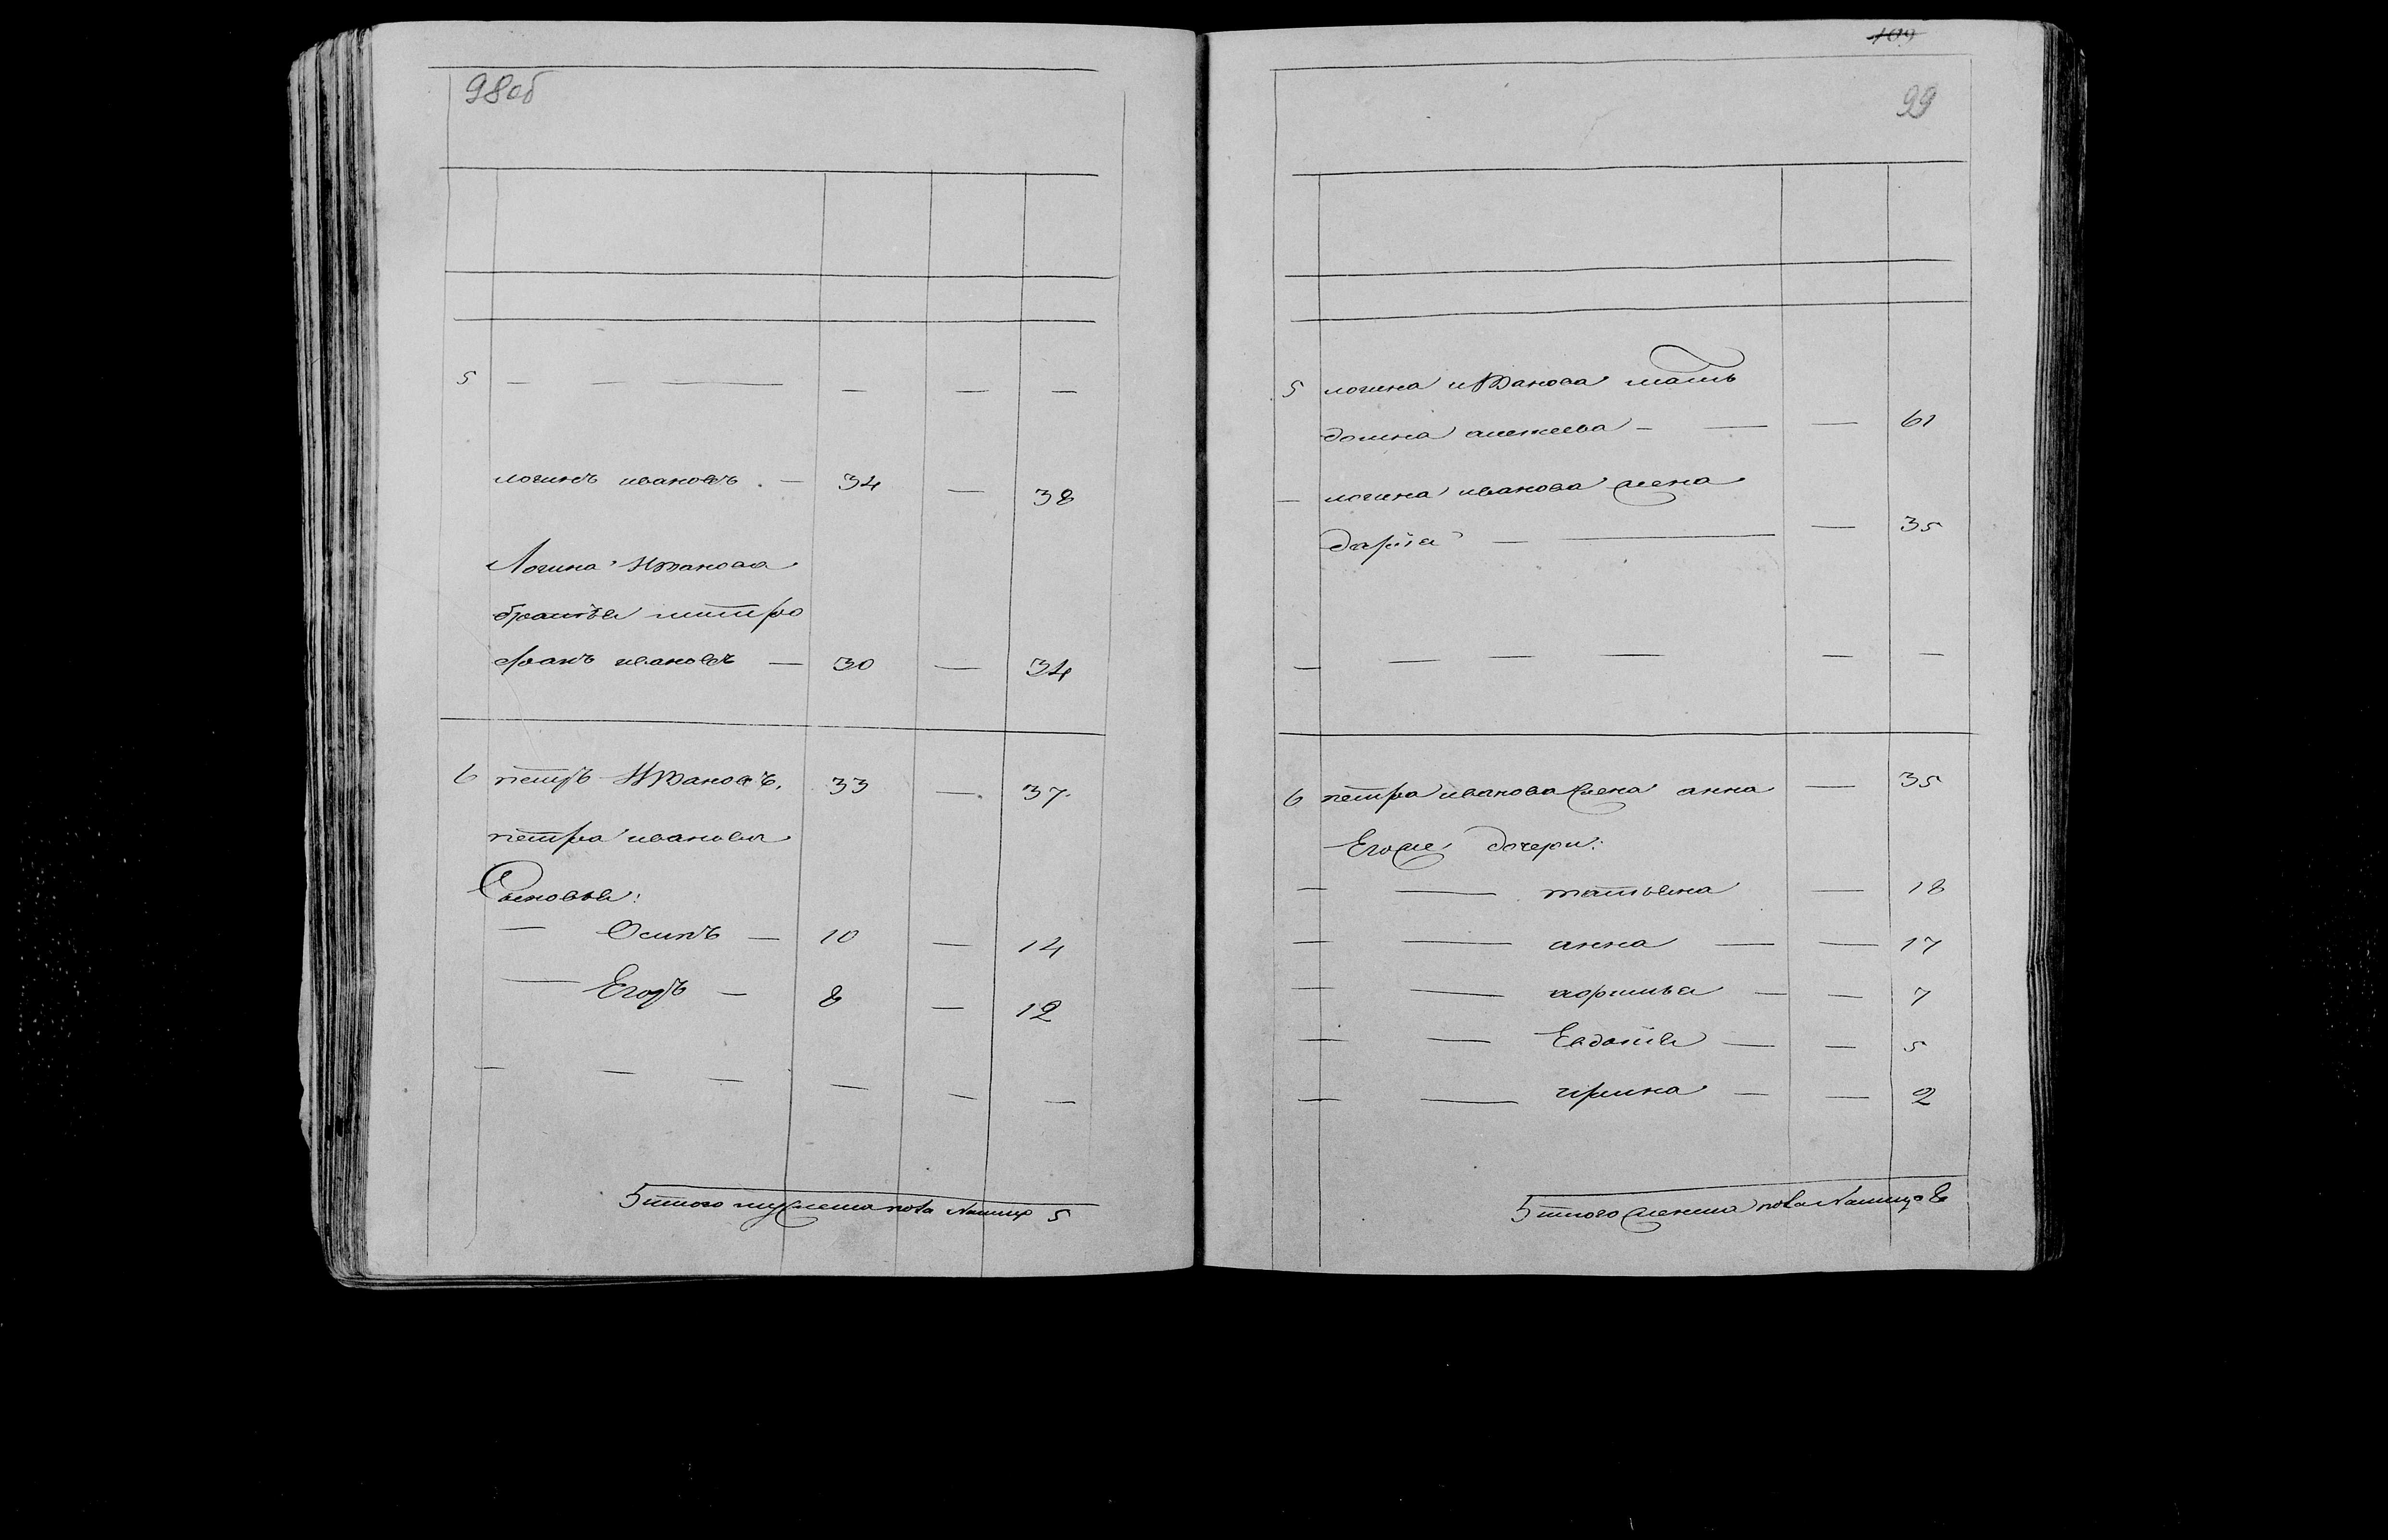 98об
5 — — — — — —
логинъ ивановъ . — 34 — 38
Логина Иванова
братья митро
фанъ ивановъ — 30 — 34
6 петръ Ивановъ. 33 — 37
петра иванова
Сыновья:
— Осипъ — 10 — 14
— Егоръ — 8 — 12
— — — — — —
Итого мужеска пола налицо 5
109
99
5 логина иванова мать
домна — — — 61
— логина иванова жена
дарья — — — 35
— — — — — —
6 петра иванова жена анна — 35
Егоже дочери:
— — татьяна — 18
— — анна — — 17
— — — — 7
— — Евдокия — — 5
— — ирина — — 2
Итого женска пола налицо 8